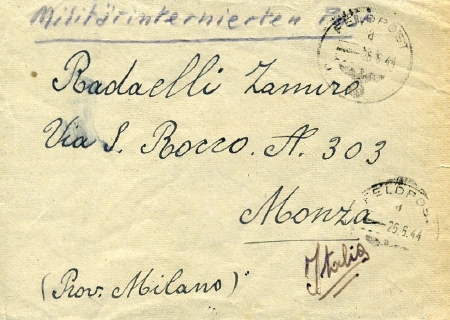 Militärinternierten
FELDPOST
d
25.5.44
Radaelli Zamiro
Via S. Rocco. N. 303
Monza
FELDPOST
d
25.5.44
Italia
(Prov. Milano)